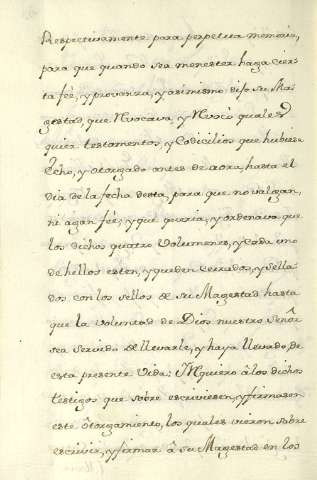 Respectivamente para perpetua memoria,
para que quando sea menester haga cier-
ta fée, y provanza, y asimismo dijo Su Ma-
gestad, que Revocava, y Revocó quales
quier testamentos, y Codicilios que hubiese
echo, y otorgado antes de aora, hasta el
dia de la fecha desta, para que no valgan,
ni agan fée; y que queria, y ordenava que
los dichos quatro Volumenes, y Cada uno
de hellos estén, y queden cerrados, y sella-
dos con los sellos de su Magestad hasta
que la voluntad de Dios nuestro Señor
sea servido de llevarle, y haya llevado, de
esta presente Vida: Y Requiero á los dichos
testigos que sobre escriviesen, y firmasen
este ôtorgamiento, los quales vieron sobre
escrivir, y firmar â su Magestad en los